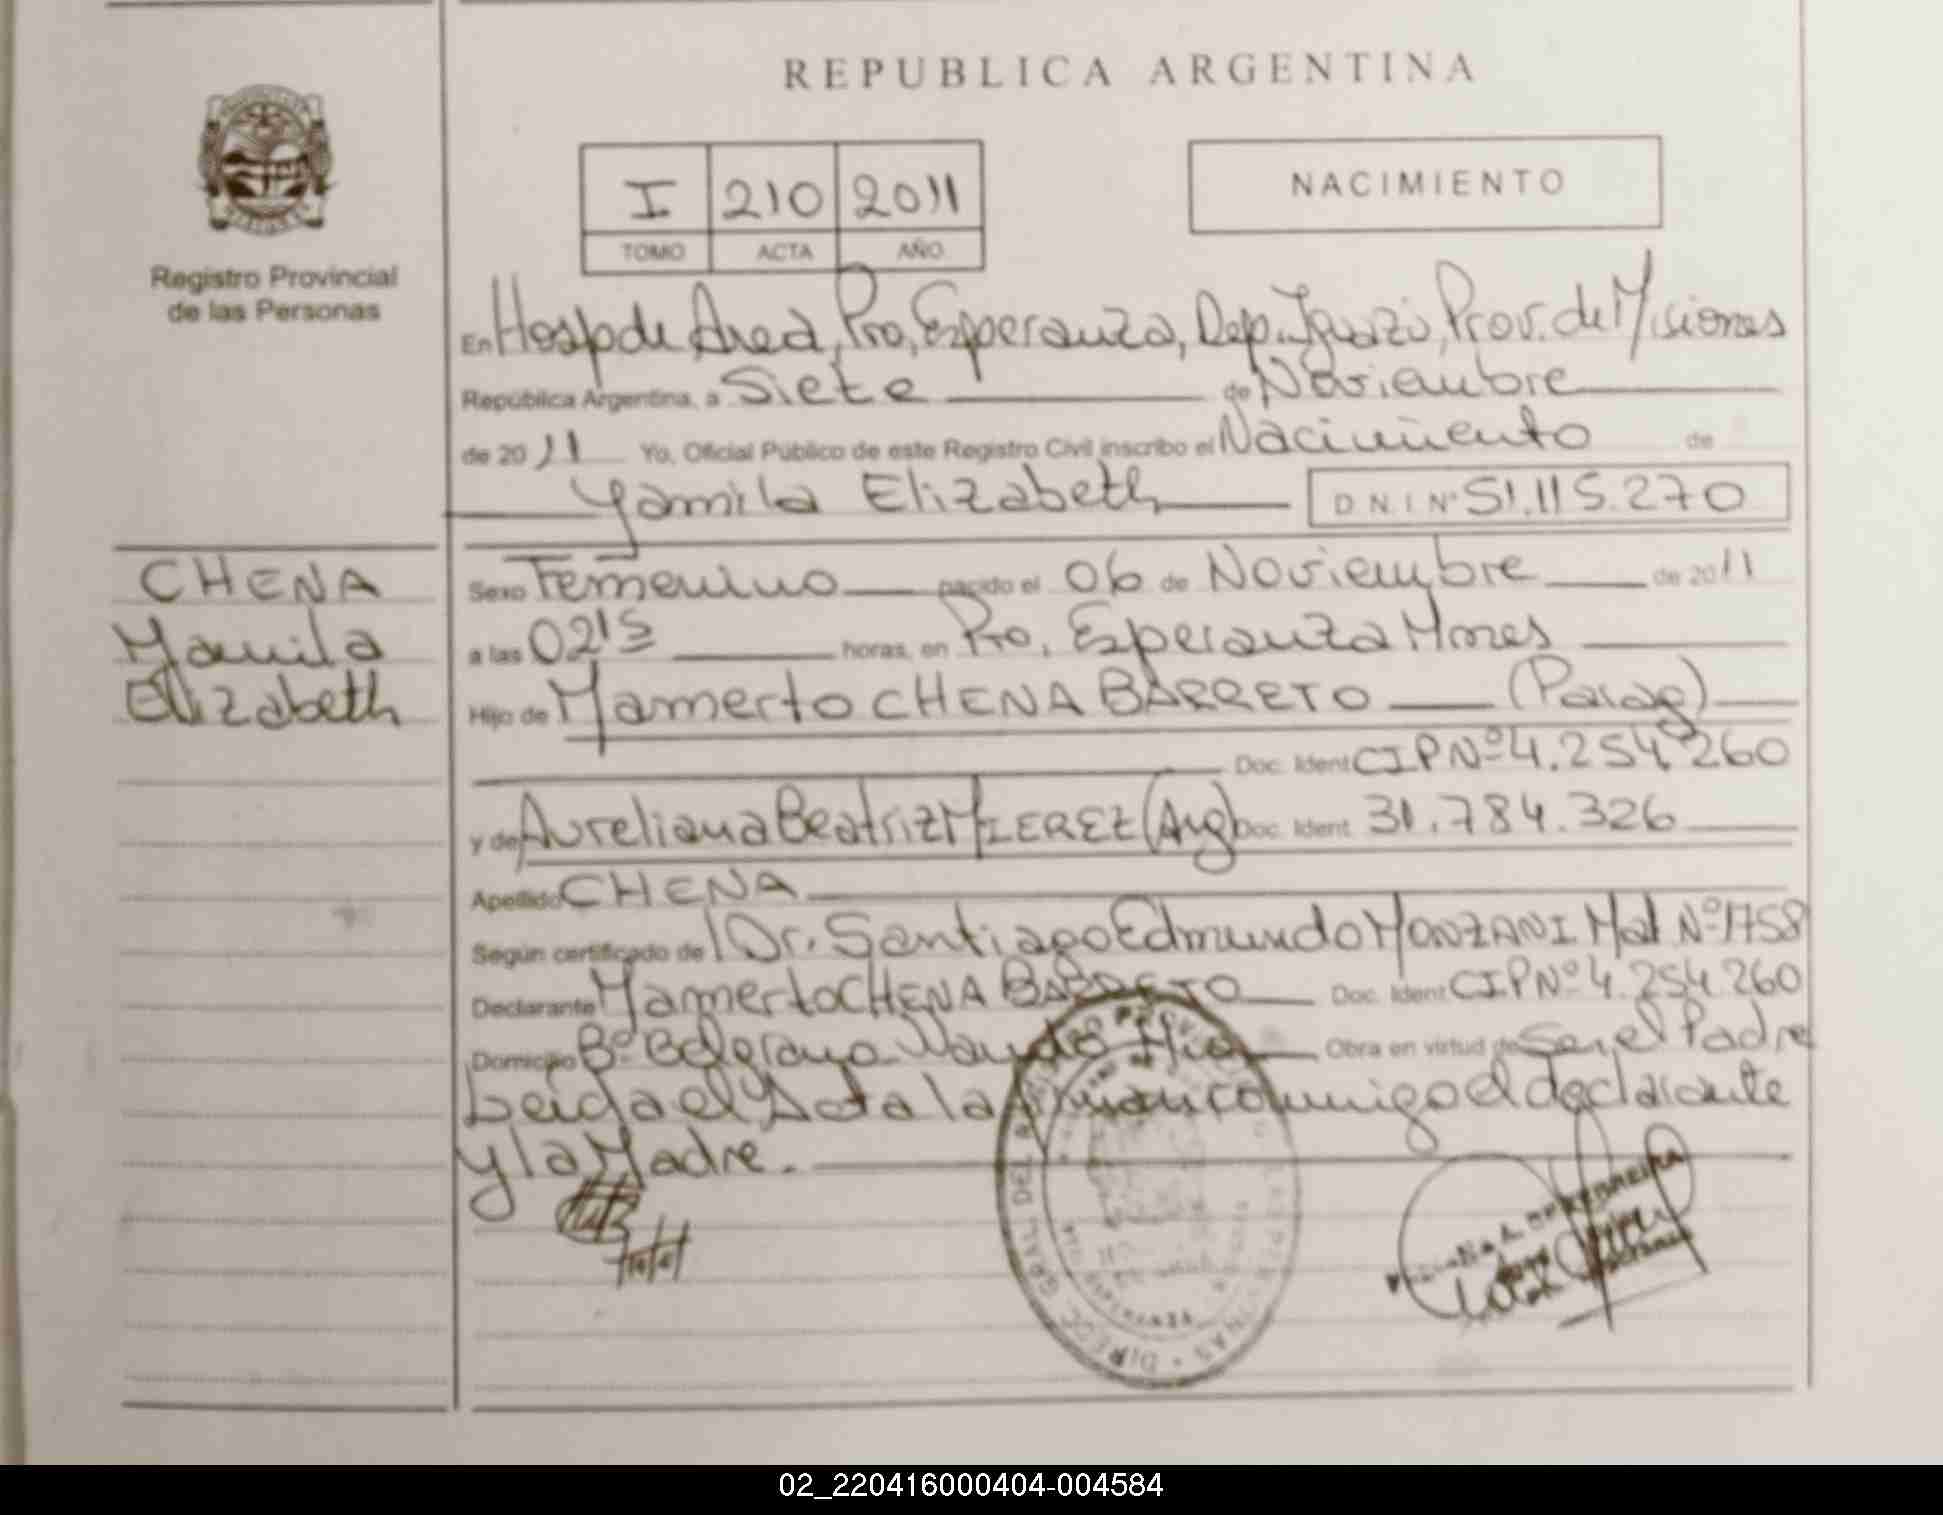 REPUBLICA ARGENTINA
I 210 2011
TOMO ACTA AÑO
NACIMIENTO
Registro Provincial
de las Personas
En Hosp de Area, Pto, Esperanza, Dep. Iguazú, Prov. de Misiones
República Argentina, a Siete de Noviembre
de 2011 Yo, Oficial Público de este Registro Civil inscribo el Nacimiento de
Yamila Elizabeth D N I Nº 51.115.270
CHENA
Yamila
Elizabeth
Sexo Femenino nacido el 06 de Noviembre de 2011
a las 02 15 horas, en Pto, Esperanza Mnes
Hijo de Mamerto CHENA BARRETO (Parag)
Doc. Ident CIP Nº 4.254.260
y de Aureliana Beatriz MIEREZ (Arg) Doc. Ident 31.784.326
Apellido CHENA
Según certificado de Dr. Santiago Edmundo MONZANI Mat Nº 1758
Declarante Mamerto CHENA BARRETO Doc. Ident CIP Nº 4.254.260
Domicilio Bº Belgrano Obra en virtud de Ser el Padre
Leida el Acta la firman conmigo el declarante
y la Madre.
02_220416000404-004584